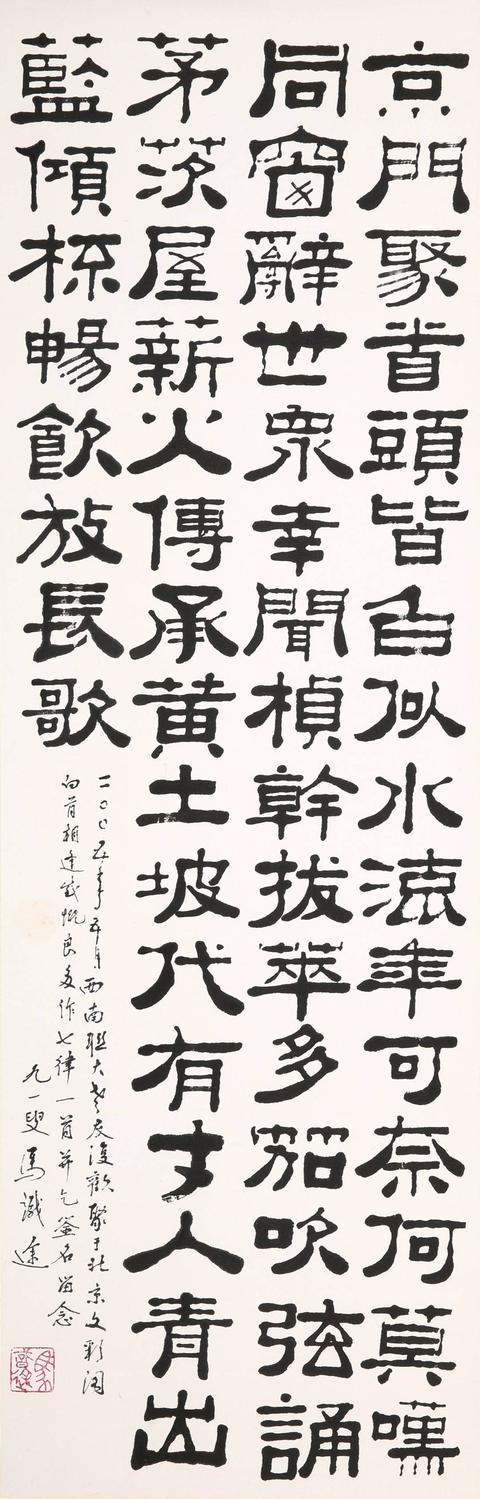 京門聚首頭皆白似水流年可奈何莫嘆
同窗辭世眾幸聞楨幹拔萃多笳吹弦誦
茅茨屋薪火傳承黃土坡代有才人青出
藍傾杯暢飲放長歌
二〇〇五年五月西南聯大老友復歡聚于北京文彩閣
白首相逢感慨良多作七律一首并乞簽名留念
九一叟馬識途